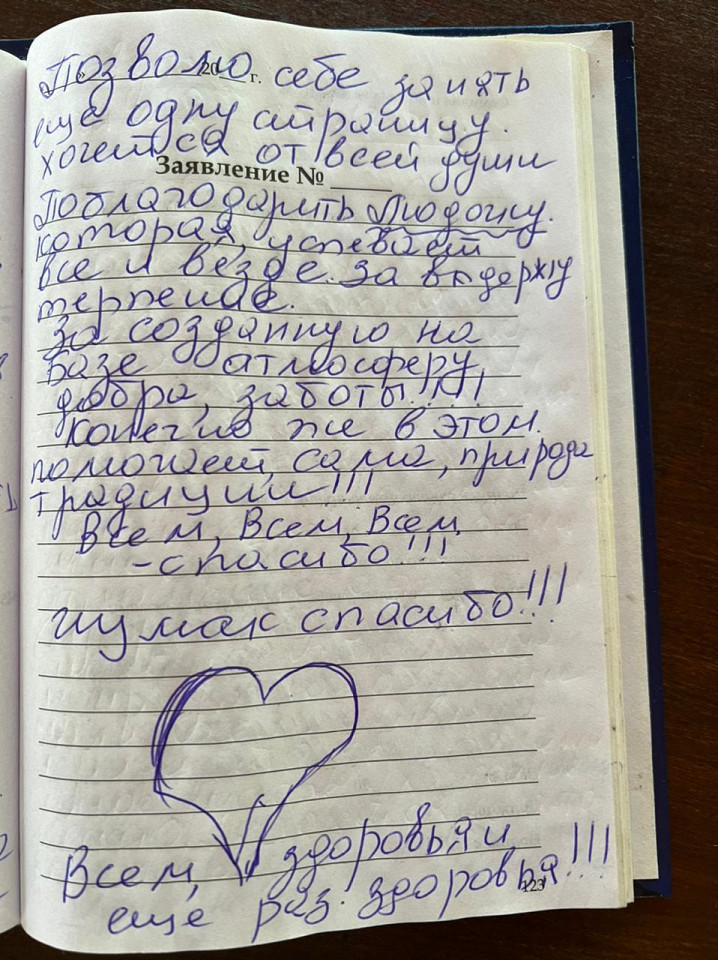 Позволю себе занять
20 г.
ещё одну страницу.
хочется от всей души
Заявление №
Поблагодарить Людочку.
которая, успевает
все и везде. за выдержку
терпение.
за созданную на
базе атмосферу,
добра, заботы!!!!
конечно же в этом.
поможет, сама, природа
традиции!!!
Всем, Всем, Всем,
- спасибо!!!
шумак спасибо!!!
Всем, здоровья и,
ещё раз. здоровья!!!
123